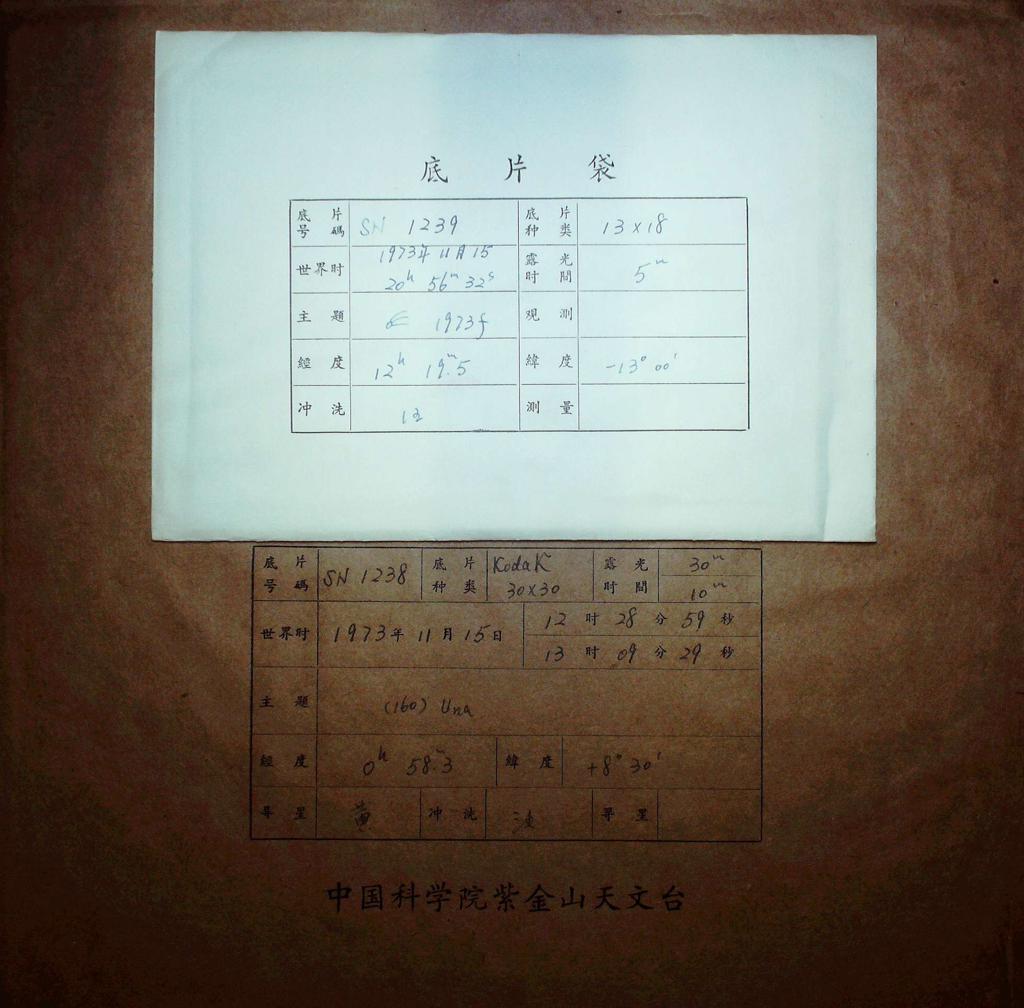 底 片 袋
底片号碼 SN 1239 底片种类 13×18
世界时 1973年 11月 15 20h 56m 32s 露光时間 5m
主題 1973f 观测
經度 12h 19m.5 緯度 -13° 00'
冲洗 测量
底片号碼 SN 1238 底片种类 Kodak 30×30 露光时間 30m 10m
世界时 1973年 11月 15日 12时 28分 59秒
13时 09分 29秒
主題 (160) Una
經度 0h 58m.3 緯度 +8° 30'
导星 黄 冲洗 导星
中国科学院紫金山天文台